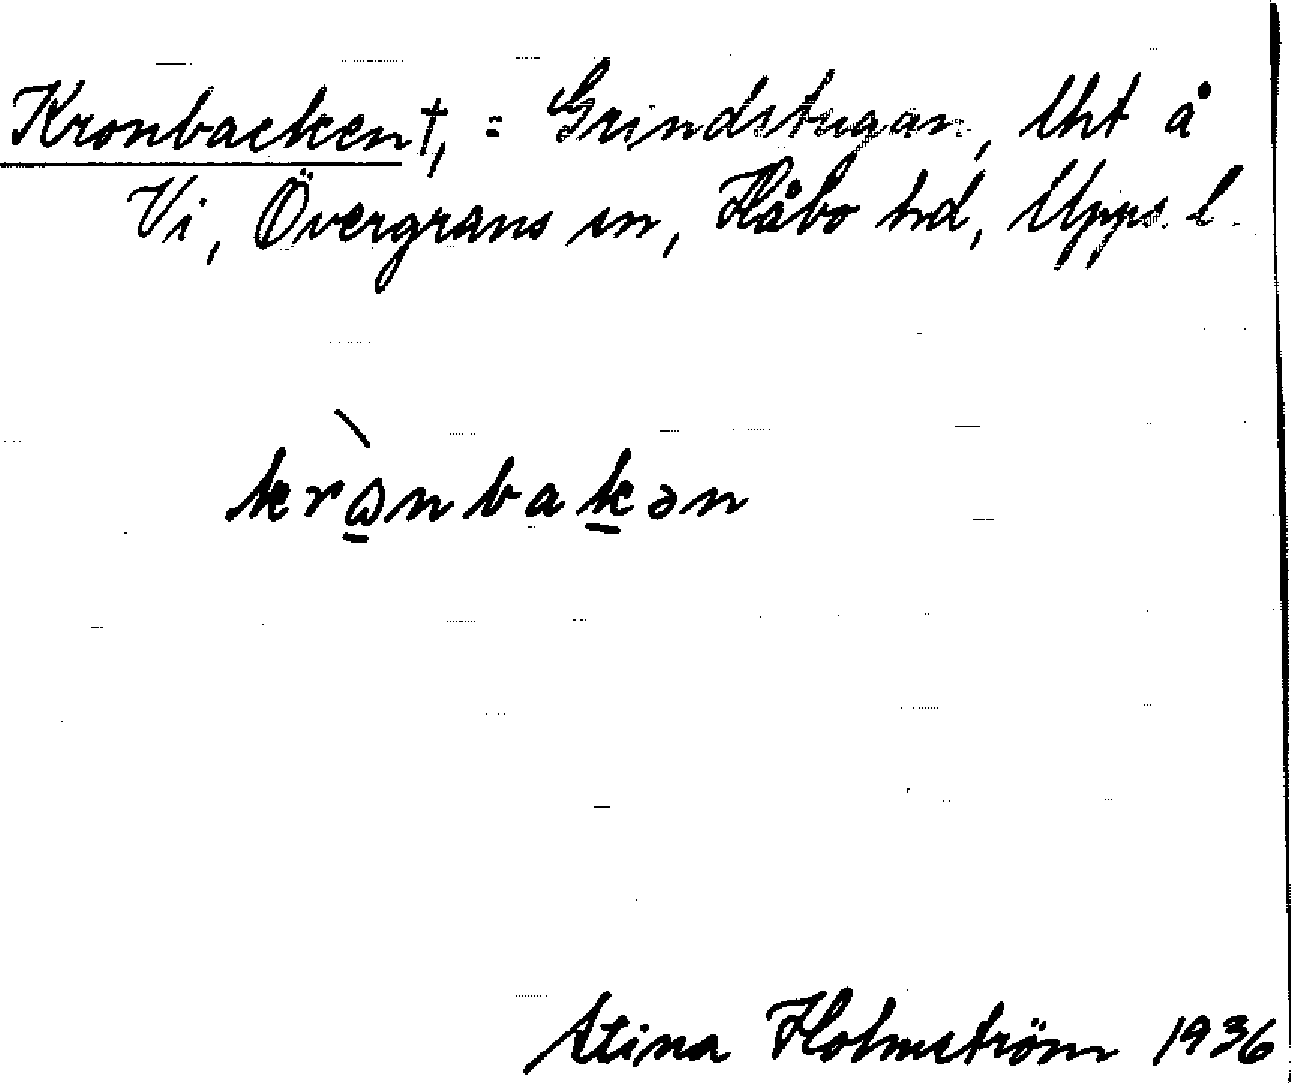 Kronbacken †, = Grindstugan, lht å
Vi, Övergrans sn, Håbo hd, Upps. l.
krωnbakən
Stina Holmström 1936